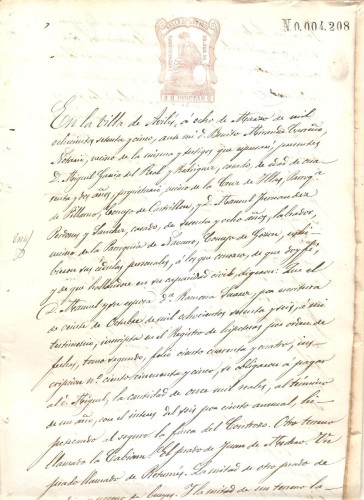 N 0.004.208
En la Villa de Avilés, á ocho de Marzo de mil
ochocientos setenta y cinco, ante mi D. Benito Miranda
Notario, vecino de la misma y testigos que espresaré, presentes
D. Miguel García del Real, y Rodriguez, casado, de edad de
y dos años, propietario, vecino de la Cruz de Illas,
de Pillarno, Concejo de Castrillon, y D. Manuel Fernandez
Perdones y Sanchez, casado, de sesenta y ocho años, labrador,
vecino de la Parroquia de Concejo de Gozon,
sus cédulas personales, á los que conozco, de que doy fé,
y de que hallándose en su capacidad civil, digeron: Que el
D. Manuel y su esposa Dª Ramona Suarez por escritura
de veinte de Octubre de mil ochocientos setenta y seis, á mi
testimonio, inscripta en el Registro de hipotecas por orden de
fechas, tomo segundo, folio ciento cuarenta y cuatro,
cripcion nº ciento cincuenta y cinco, se obligaron á pagar
al D. Miguel, la cantidad de once mil reales, al término
de un año, con el interes del seis por ciento annual,
potecando al seguro la finca del Otro terreno
llamado la El prado de Juan de Un
prado llamado de La mitad de otro prado de
de bueyes. Y la mitad de un terreno la